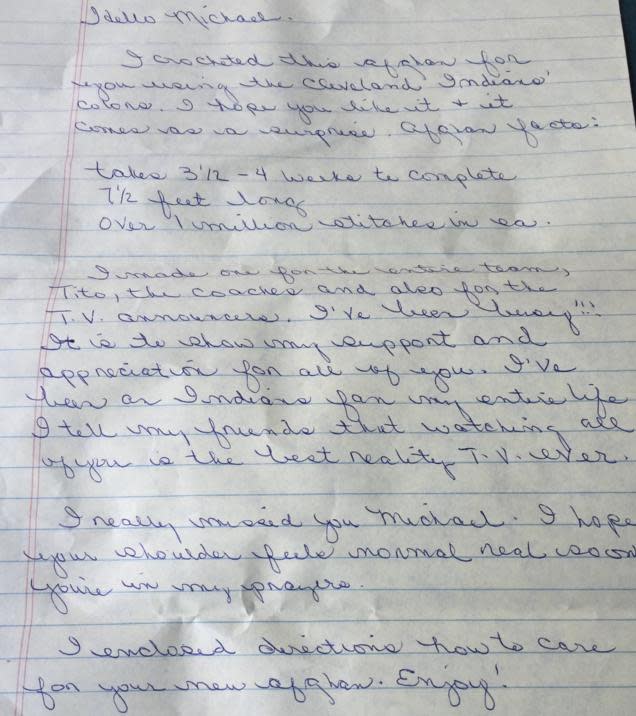 Hello Michael.
I crochted this afghan for
you using the Cleveland Indians'
colors. I hope you like it + it
comes as a surprise. Afghan facts:
takes 3 1/2 - 4 weeks to complete
7 1/2 feet long
over 1 million stitches in ea.
I made one for the entire team,
Tito, the coaches and also for the
T.V. announcers. I've been busy!!!
It is to show my support and
appreciation for all of you. I've
been an Indians fan my entire life
I tell my friends that watching all
of you is the best reality T.V. ever.
I really missed you Michael. I hope
your shoulder feels normal real soon
you're in my prayers.
I enclosed directions how to care
for your new afghan. Enjoy!